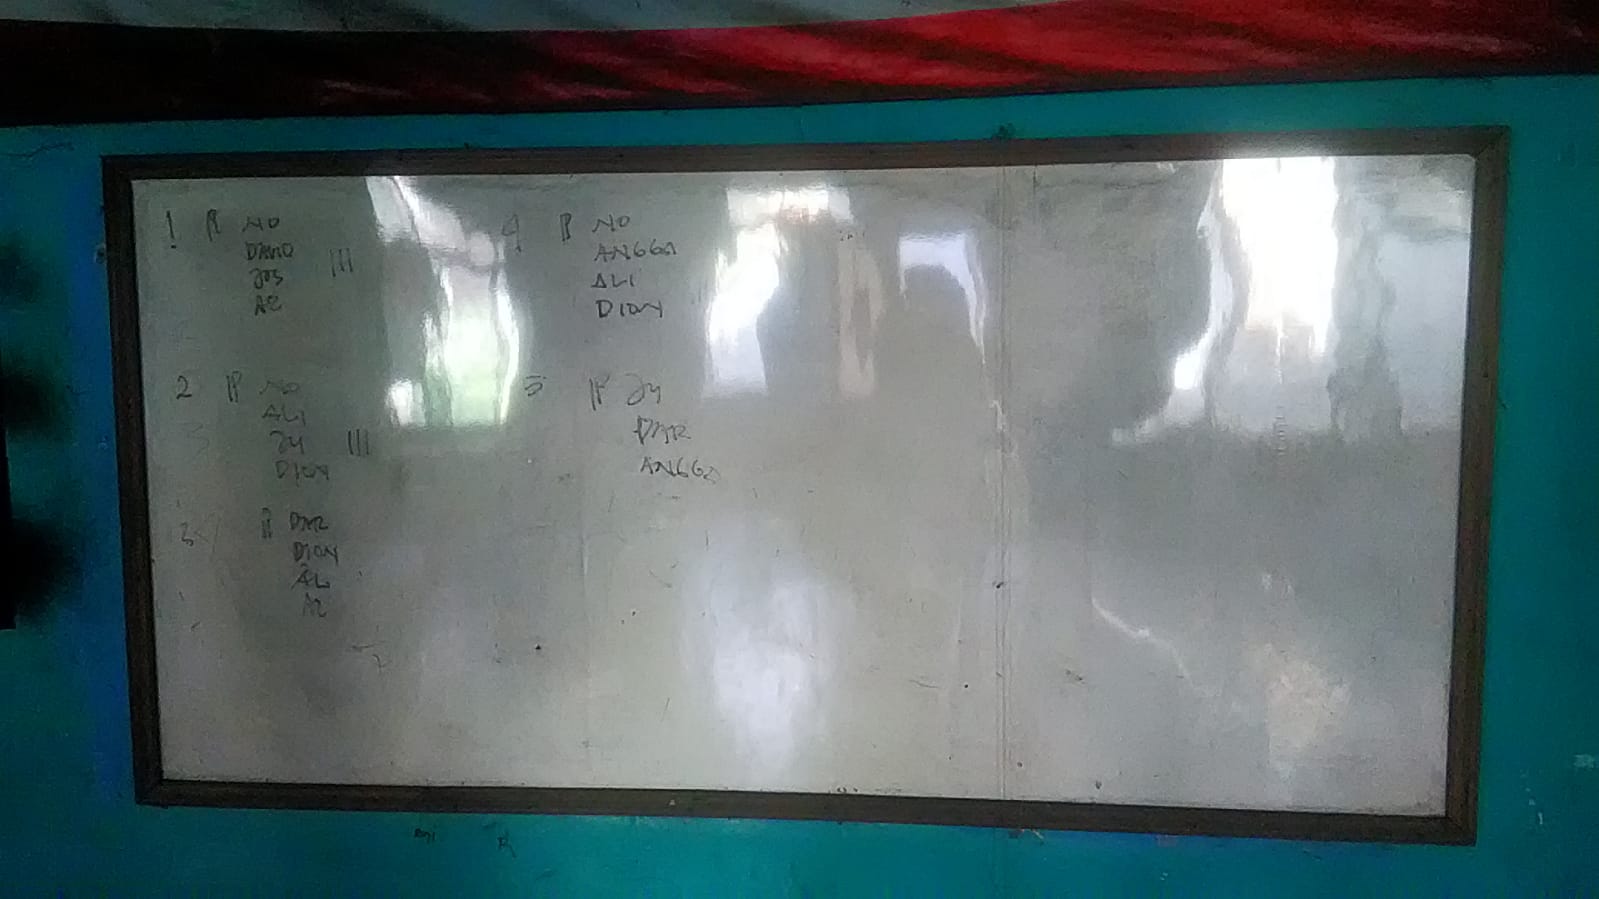 1 P NO
DAVID
JOS III
AZ
2 P NO
ALI
III
DION
3 P DAR
DION
AL
AZ
4 P NO
ANGGA
ALI
DION
5 P
DAR
ANGGA